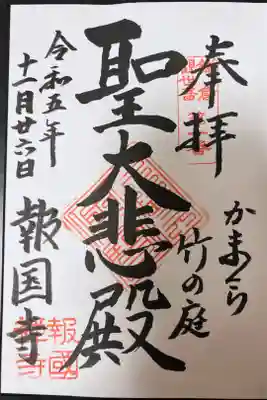 奉拝
かまくら
竹の庭
聖大悲殿
令和五年
十一月廿六日
報国寺